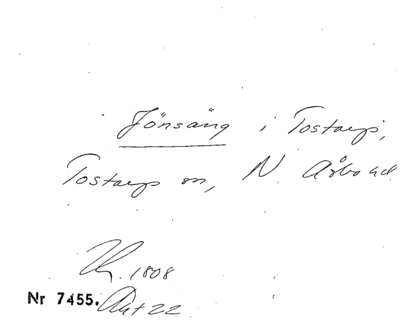 Jönsäng i Tostarp,
Tostarps sn, N. Åsbo hd
1808
Nr 7455. Akt 22